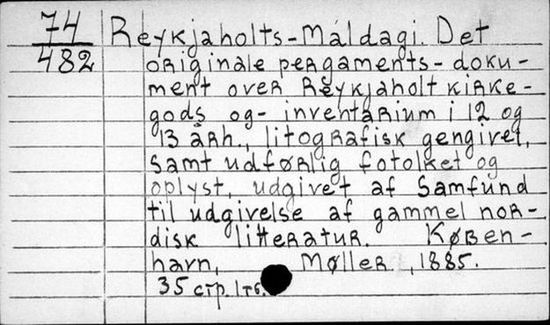 74 Reykjaholts-Máldagi. Det
482 originale pergaments-doku-
ment over Reykjaholt kirke-
gods og- inventarium i 12 og
13 årh., litografisk gengivet,
samt udførlig fotolket og
oplyst, udgivet af Samfund
til udgivelse af gammel nor-
disk litteratur. Køben-
havn, Møller, 1885.
35 стр.